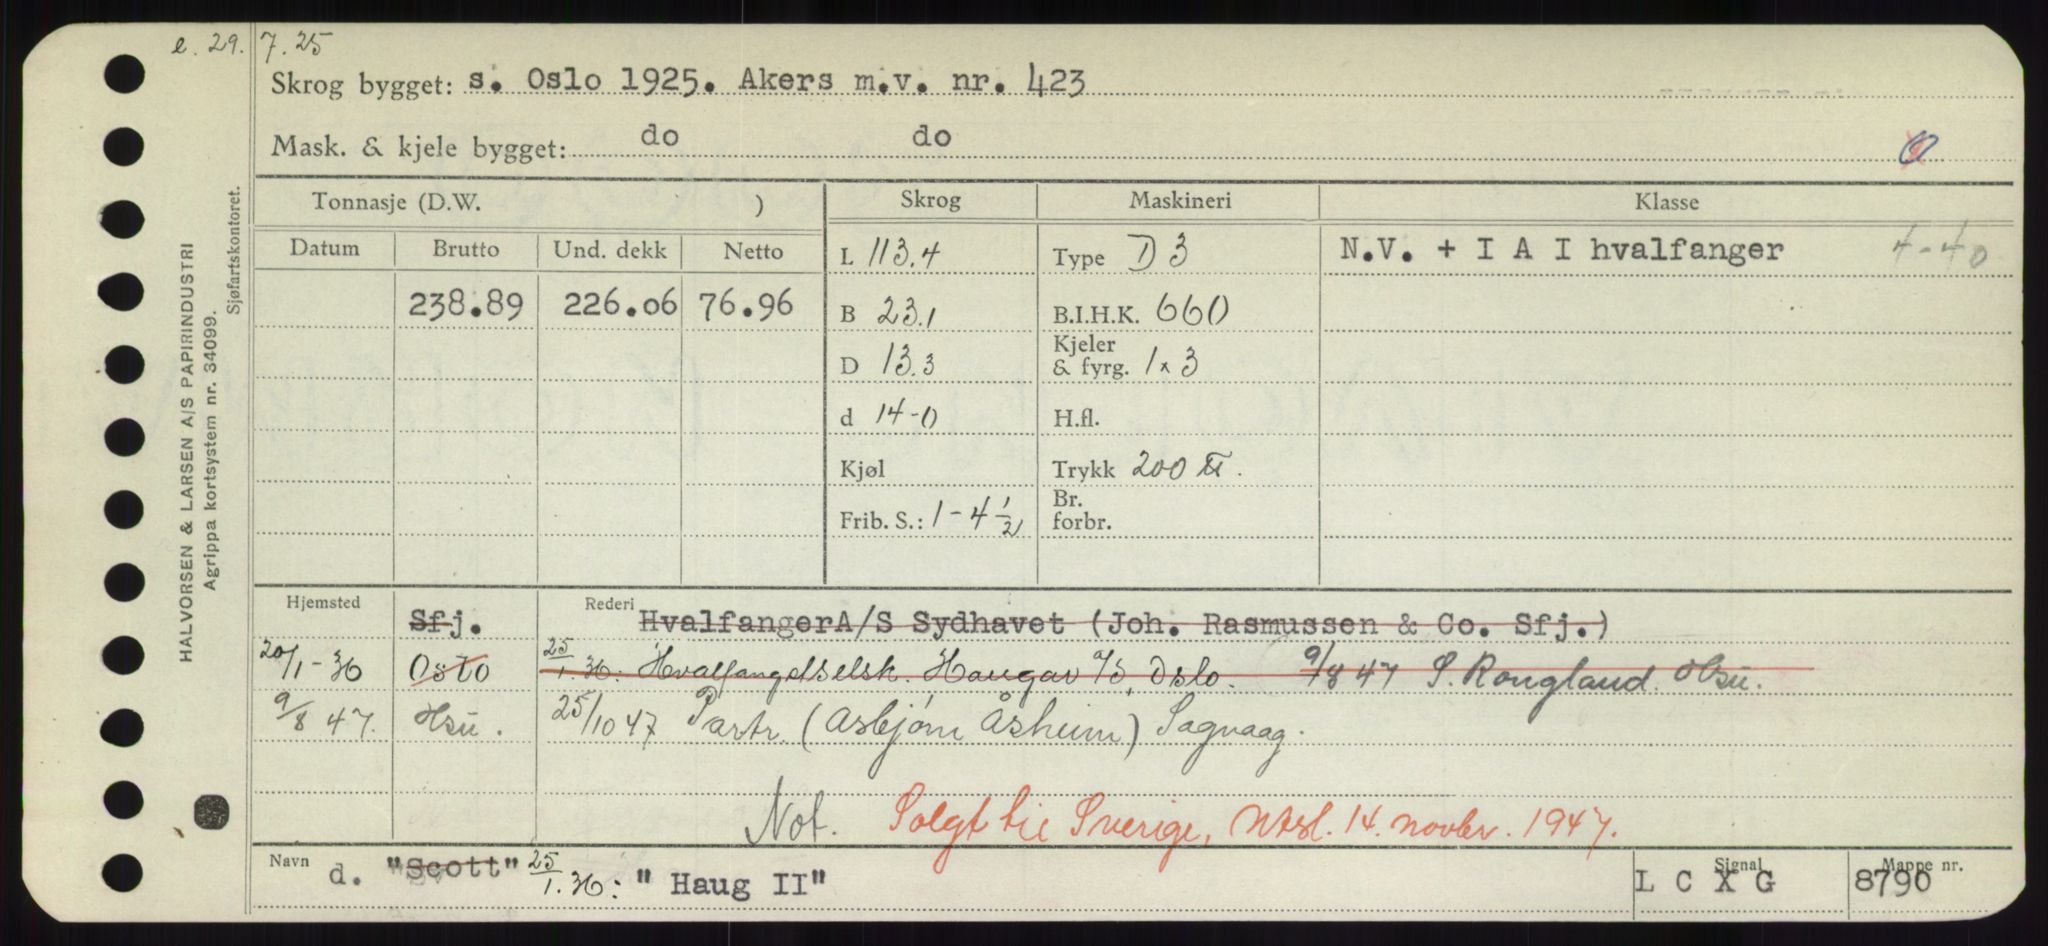 e. 29. 7. 25
Skrog bygget: s. Oslo 1925. Akers m.v. nr. 423
Mask. & kjele bygget: do do
Tonnasje (D.W. ) Skrog Maskineri Klasse
Datum Brutto Und. dekk Netto L 113.4 Type D 3 N.V. + I A I hvalfanger 4-40
238.89 226.06 76.96 B 23.1 B.I.H.K. 660
D 13.3 Kjeler & fyrg. 1 x 3
d 14-0 H.fl.
Kjøl Trykk 200
Frib. S.: 1 - 4 1/2 Br. forbr.
Hjemsted Sfj. Rederi HvalfangerA/S Sydhavet (Joh. Rasmussen & Co. Sfj.)
20/1-36 Oslo 25/1.36: Hvalfangstselsk. Haugar A/S, Oslo. 9/8 47 S. Rongland. Hsu.
9/8 47. Hsu. 25/10 47 Partr. (Asbjørn Åsheim) Sagvaag.
Not. Solgt til Sverige, Ntsl. 14. novbr. 1947.
Navn d. "Scott" 25/1.36: "Haug II" Signal L C X G Mappe nr. 8790
HALVORSEN & LARSEN A/S PAPIRINDUSTRI
Agrippa kortsystem nr. 34099.
Sjøfartskontoret.